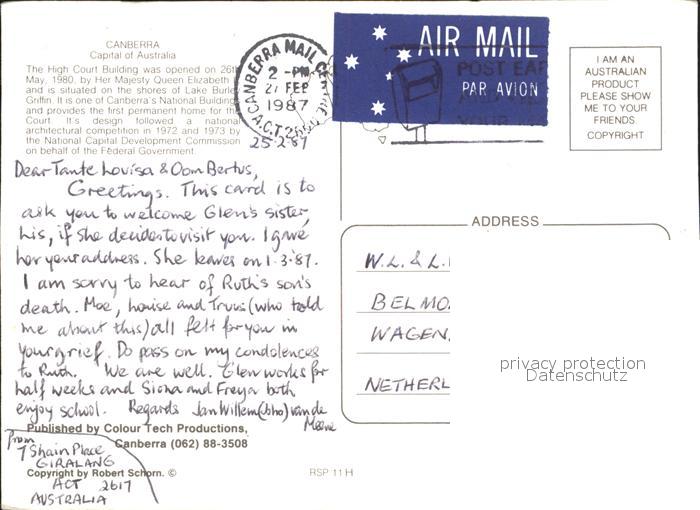 CANBERRA
Capital of Australia
The High Court Building was opened on 26th
May, 1980, by Her Majesty Queen Elizabeth
and is situated on the shores of Lake Burley
Griffin. It is one of Canberra's National Buildings
and provides the first permanent home for the
Court. It's design followed a national
architectural competition in 1972 and 1973 by
the National Capital Development Commission
on behalf of the Federal Government.
CANBERRA MAIL CENTRE
2 - PM
27 FEB
1987
A.C.T. 2600
AIR MAIL
PAR AVION
POST EAR
I AM AN
AUSTRALIAN
PRODUCT
PLEASE SHOW
ME TO YOUR
FRIENDS
COPYRIGHT
25-2-87
Dear Tante Louisa & Oom Bertus,
Greetings. This card is to
ask you to welcome Glen's sister,
Lis, if she decides to visit you. I gave
her your address. She leaves on 1.3.87.
I am sorry to hear of Ruth's son's
death. Moe, Louise and Truus (who told
me about this) all felt for you in
your grief. Do pass on my condolences
to Ruth. We are well. Glen works for
half weeks and Siona and Freya both
enjoy school. Regards Jan Willem (Joho) van de
Meene
Published by Colour Tech Productions,
Canberra (062) 88-3508
From
7 Shain Place
GIRALANG
Copyright by Robert Schorn. ©
ACT 2617
AUSTRALIA
RSP 11 H
ADDRESS
W.L. & L.
BELMO
WAGEN
NETHERL
privacy protection
Datenschutz